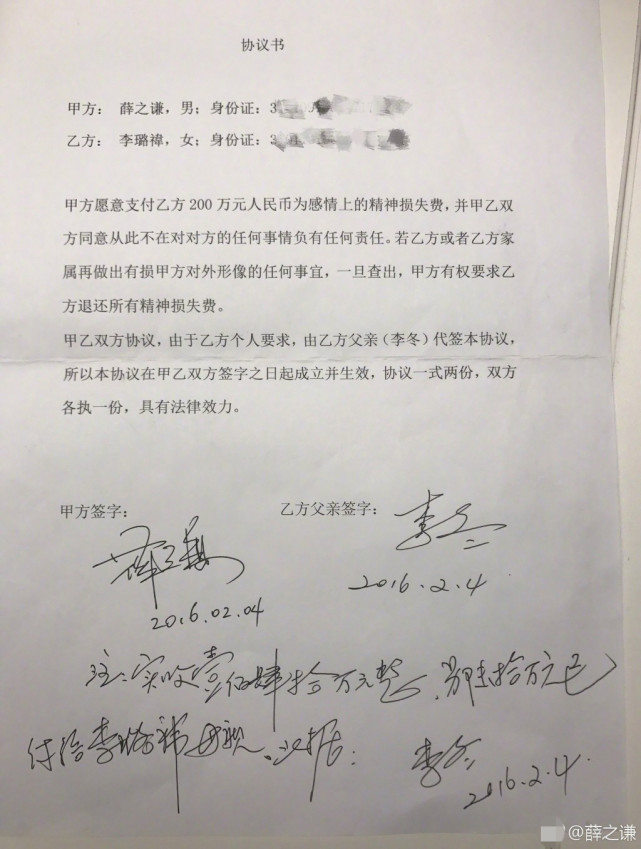 协议书
甲方： 薛之谦，男；身份证：3
乙方： 李璐禕，女；身份证：3
甲方愿意支付乙方 200 万元人民币为感情上的精神损失费，并甲乙双
方同意从此不在对对方的任何事情负有任何责任。若乙方或者乙方家
属再做出有损甲方对外形像的任何事宜，一旦查出，甲方有权要求乙
方退还所有精神损失费。
甲乙双方协议，由于乙方个人要求，由乙方父亲（李冬）代签本协议，
所以本协议在甲乙双方签字之日起成立并生效，协议一式两份，双方
各执一份，具有法律效力。
甲方签字： 乙方父亲签字：
薛之谦 李冬
2016.02.04 2016.2.4
注：实收壹佰肆拾万元整，拾万元已
付给李璐祎母亲。此据： 李冬
2016.2.4
@薛之谦